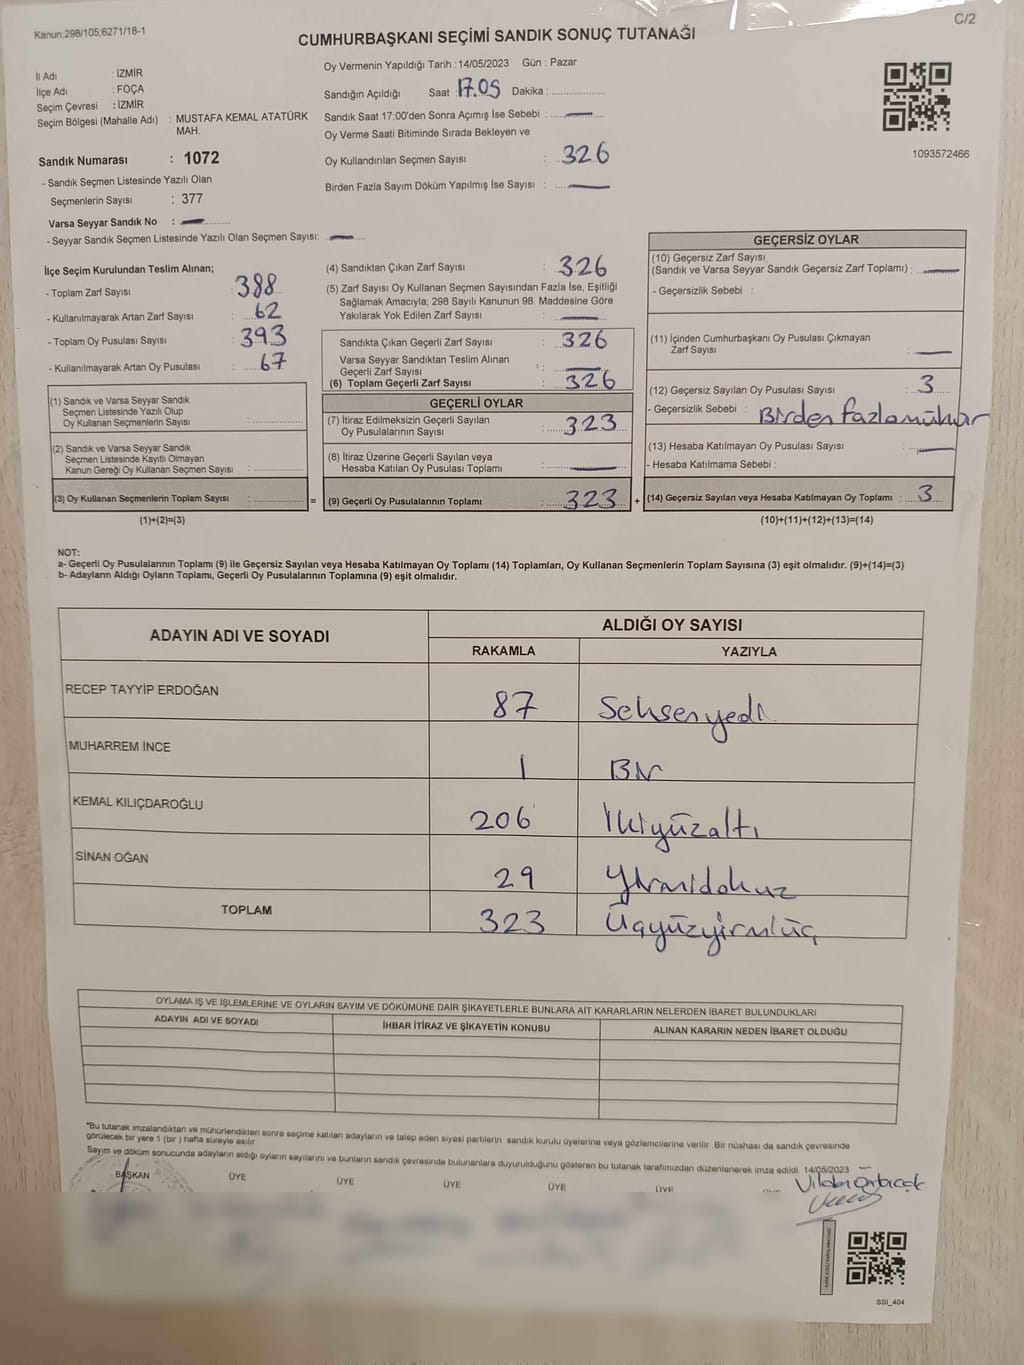 Kanun,298/105,6271/18-1
C/2
CUMHURBAŞKANI SEÇİMİ SANDIK SONUÇ TUTANAĞI
İl Adı : İZMİR
İlçe Adı : FOÇA
Seçim Çevresi : İZMİR
Seçim Bölgesi (Mahalle Adı) : MUSTAFA KEMAL ATATÜRK MAH.
Sandık Numarası : 1072
- Sandık Seçmen Listesinde Yazılı Olan
Seçmenlerin Sayısı : 377
Varsa Seyyar Sandık No :
- Seyyar Sandık Seçmen Listesinde Yazılı Olan Seçmen Sayısı:
Oy Vermenin Yapıldığı Tarih :14/05/2023 Gün : Pazar
Sandığın Açıldığı Saat : 17.05 Dakika :
Sandık Saat 17:00'den Sonra Açımış İse Sebebi :
Oy Verme Saati Bitiminde Sırada Bekleyen ve
Oy Kullandırılan Seçmen Sayısı : 326
Birden Fazla Sayım Döküm Yapılmış İse Sayısı :
1093572466
İlçe Seçim Kurulundan Teslim Alınan;
- Toplam Zarf Sayısı : 388
- Kullanılmayarak Artan Zarf Sayısı : 62
- Toplam Oy Pusulası Sayısı : 393
- Kullanılmayarak Artan Oy Pusulası : 67
(1) Sandık ve Varsa Seyyar Sandık
Seçmen Listesinde Yazılı Olup
Oy Kullanan Seçmenlerin Sayısı :
(2) Sandık ve Varsa Seyyar Sandık
Seçmen Listesinde Kayıtlı Olmayan
Kanun Gereği Oy Kullanan Seçmen Sayısı :
(3) Oy Kullanan Seçmenlerin Toplam Sayısı : =
(1)+(2)=(3)
(4) Sandıktan Çıkan Zarf Sayısı : 326
(5) Zarf Sayısı Oy Kullanan Seçmen Sayısından Fazla İse, Eşitliği
Sağlamak Amacıyla; 298 Sayılı Kanunun 98. Maddesine Göre
Yakılarak Yok Edilen Zarf Sayısı :
Sandıkta Çıkan Geçerli Zarf Sayısı : 326
Varsa Seyyar Sandıktan Teslim Alınan
Geçerli Zarf Sayısı :
(6) Toplam Geçerli Zarf Sayısı : 326
GEÇERLİ OYLAR
(7) İtiraz Edilmeksizin Geçerli Sayılan
Oy Pusulalarının Sayısı : 323
(8) İtiraz Üzerine Geçerli Sayılan veya
Hesaba Katılan Oy Pusulası Toplamı :
(9) Geçerli Oy Pusulalarının Toplamı : 323 +
GEÇERSİZ OYLAR
(10) Geçersiz Zarf Sayısı
(Sandık ve Varsa Seyyar Sandık Geçersiz Zarf Toplamı) :
- Geçersizlik Sebebi :
(11) İçinden Cumhurbaşkanı Oy Pusulası Çıkmayan
Zarf Sayısı :
(12) Geçersiz Sayılan Oy Pusulası Sayısı : 3
- Geçersizlik Sebebi : Birden fazla mühür
(13) Hesaba Katılmayan Oy Pusulası Sayısı :
- Hesaba Katılmama Sebebi :
(14) Geçersiz Sayılan veya Hesaba Katılmayan Oy Toplamı : 3
(10)+(11)+(12)+(13)=(14)
NOT:
a- Geçerli Oy Pusulalarının Toplamı (9) ile Geçersiz Sayılan veya Hesaba Katılmayan Oy Toplamı (14) Toplamları, Oy Kullanan Seçmenlerin Toplam Sayısına (3) eşit olmalıdır. (9)+(14)=(3)
b- Adayların Aldığı Oyların Toplamı, Geçerli Oy Pusulalarının Toplamına (9) eşit olmalıdır.
ADAYIN ADI VE SOYADI ALDIĞI OY SAYISI
RAKAMLA YAZIYLA
RECEP TAYYİP ERDOĞAN 87 Seksenyedi
MUHARREM İNCE 1 Bir
KEMAL KILIÇDAROĞLU 206 İkiyüzaltı
SİNAN OĞAN 29 Yirmidokuz
TOPLAM 323 Üçyüzyirmiüç
OYLAMA İŞ VE İŞLEMLERİNE VE OYLARIN SAYIM VE DÖKÜMÜNE DAİR ŞİKAYETLERLE BUNLARA AİT KARARLARIN NELERDEN İBARET BULUNDUKLARI
ADAYIN ADI VE SOYADI İHBAR İTİRAZ VE ŞİKAYETİN KONUSU ALINAN KARARIN NEDEN İBARET OLDUĞU
*Bu tutanak imzalandıktan ve mühürlendikten sonra seçime katılan adayların ve talep eden siyasi partilerin sandık kurulu üyelerine veya gözlemcilerine verilir. Bir nüshası da sandık çevresinde
görülecek bir yere 1 (bir ) hafta süreyle asılır.
Sayım ve döküm sonucunda adayların aldığı oyların sayılarını ve bunların sandık çevresinde bulunanlara duyurulduğunu gösteren bu tutanak tarafımızdan düzenlenerek imza edildi. 14/05/2023
BAŞKAN ÜYE ÜYE ÜYE ÜYE ÜYE
SSI_404